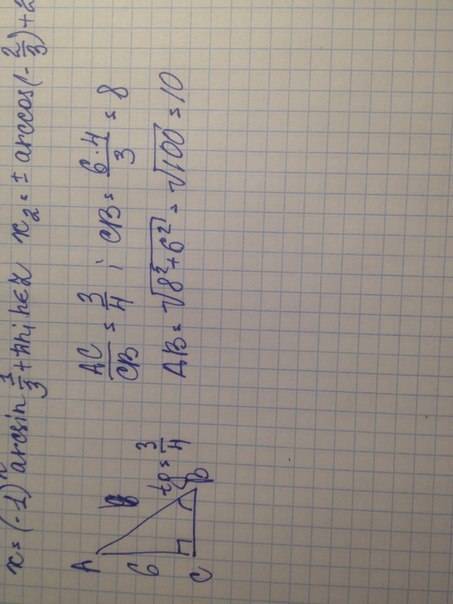 x = (-1)ⁿ arcsin 1/3 + πn; n∈Z x₂ = ± arccos(-2/3) + 2
A
6
C
B
tg = 3/4
AC/CB = 3/4 ; CB = 6·4/3 = 8
AB = √(8² + 6²) = √100 = 10